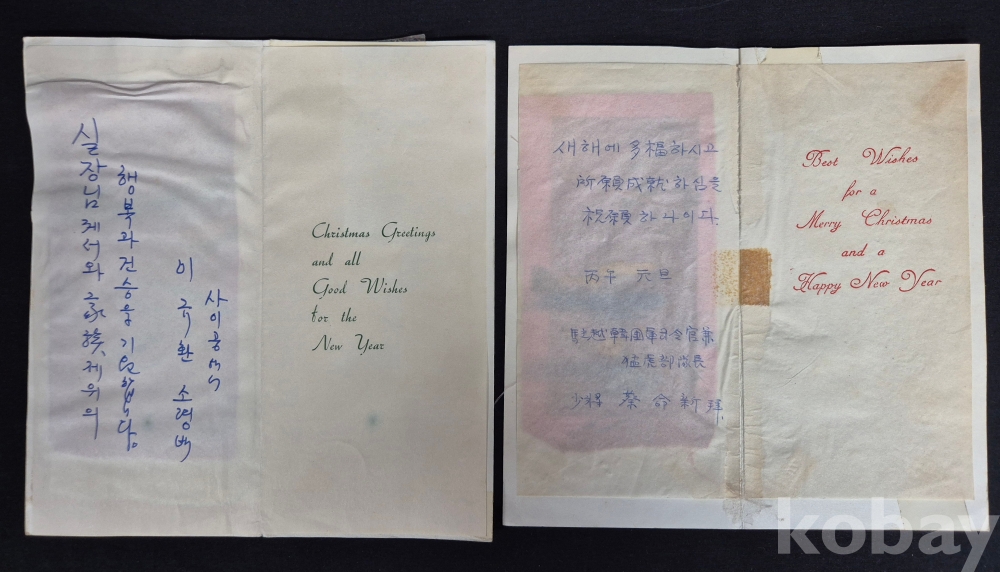 실장님께서와 家族 제위의
행복과 건승을 기원합니다.
사이공에서
이 규환 소령 백
Christmas Greetings
and all
Good Wishes
for the
New Year
새해에 多福하시고
所願成就하심을
祝願하나이다.
丙午 元旦
駐越韓國軍司令官兼
猛虎部隊長
少將 蔡命新 拜
Best Wishes
for a
Merry Christmas
and a
Happy New Year
kobay